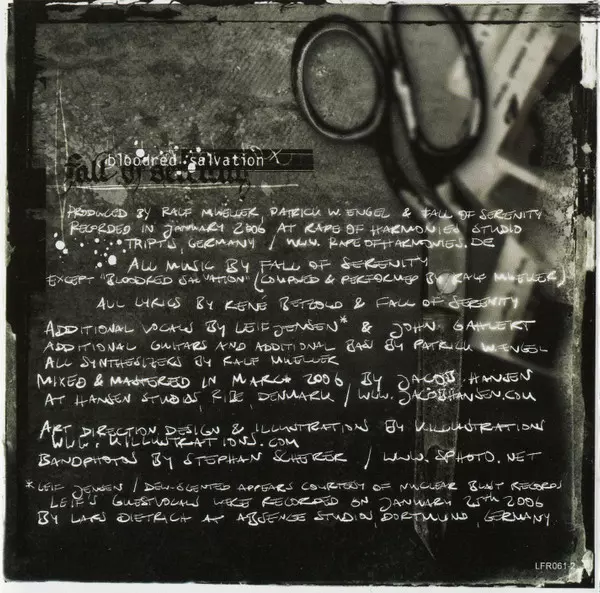 bloodred salvation
fall of serenity
PRODUCED BY RALF MUELLER, PATRICK W. ENGEL & FALL OF SERENITY
RECORDED IN JANUARY 2006 AT RAPE OF HARMONIES STUDIO
TRIPTIS, GERMANY / WWW.RAPEOFHARMONIES.DE
ALL MUSIC BY FALL OF SERENITY
EXCEPT "BLOODRED SALVATION" (COMPOSED & PERFORMED BY RALF MUELLER)
ALL LYRICS BY RENÉ BETZOLD & FALL OF SERENITY
ADDITIONAL VOCALS BY LEIF JENSEN* & JOHN GAHLERT
ADDITIONAL GUITARS AND ADDITIONAL BASS BY PATRICK W. ENGEL
ALL SYNTHESIZERS BY RALF MUELLER
MIXED & MASTERED IN MARCH 2006 BY JACOB HANSEN
AT HANSEN STUDIOS, RIBE, DENMARK / WWW.JACOBHANSEN.COM
ART DIRECTION, DESIGN & ILLUSTRATION BY KILLUSTRATIONS
WWW.KILLUSTRATIONS.COM
BANDPHOTOS BY STEPHAN SCHERER / WWW.SPHOTO.NET
*LEIF JENSEN / DEW-SCENTED APPEARS COURTESY OF NUCLEAR BLAST RECORDS
LEIF'S GUESTVOCALS WERE RECORDED ON JANUARY 25TH 2006
BY LARS DIETRICH AT ABSENCE STUDIOS, DORTMUND, GERMANY
LFR061-2